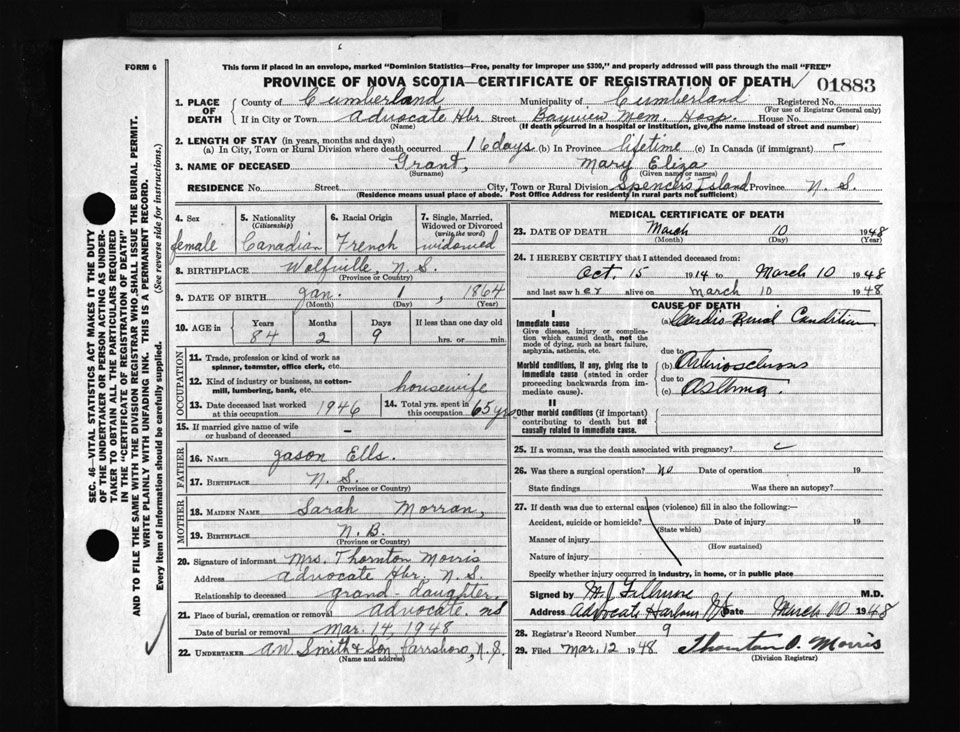 FORM 6
This form if placed in an envelope, marked "Dominion Statistics—Free, penalty for improper use $300," and properly addressed will pass through the mail "FREE"
PROVINCE OF NOVA SCOTIA—CERTIFICATE OF REGISTRATION OF DEATH 01883
1. PLACE OF DEATH County of Cumberland Municipality of Cumberland Registered No.
(For use of Registrar General only)
If in City or Town Advocate Hbr. Street Bayview Mem. Hosp. House No.
(Name) (If death occurred in a hospital or institution, give the name instead of street and number)
2. LENGTH OF STAY (in years, months and days)
(a) In City, Town or Rural Division where death occurred 16 days (b) In Province lifetime (c) In Canada (if immigrant) -
3. NAME OF DECEASED Grant, Mary Eliza
(Surname) (Given name or names)
RESIDENCE No. Street City, Town or Rural Division Spencer's Island Province N. S.
(Residence means usual place of abode. Post Office Address for residents in rural parts not sufficient)
4. Sex female
5. Nationality (Citizenship) Canadian
6. Racial Origin French
7. Single, Married, Widowed or Divorced (write the word) widowed
8. BIRTHPLACE Wolfville, N. S.
9. DATE OF BIRTH Jan. 1, 1864
(Month) (Day) (Year)
10. AGE in Years Months Days If less than one day old
84 2 9 hrs. or min.
OCCUPATION
11. Trade, profession or kind of work as spinner, teamster, office clerk, etc.
12. Kind of industry or business, as cotton-mill, lumbering, bank, etc. housewife
13. Date deceased last worked at this occupation 1946
14. Total yrs. spent in this occupation 65 yrs
15. If married give name of wife or husband of deceased -
FATHER
16. NAME Jason Ells.
17. BIRTHPLACE N. S.
(Province or Country)
MOTHER
18. MAIDEN NAME Sarah Morran,
19. BIRTHPLACE N. B.
(Province or Country)
20. Signature of informant Mrs. Thornton Morris
Address Advocate Hbr. N. S.
Relationship to deceased grand-daughter.
21. Place of burial, cremation or removal Advocate. NS
Date of burial or removal Mar. 14, 1948
22. UNDERTAKER AW Smith & Son, Parrsboro, N. S.
(Name and address)
MEDICAL CERTIFICATE OF DEATH
23. DATE OF DEATH March 10 1948
(Month) (Day) (Year)
24. I HEREBY CERTIFY that I attended deceased from:
Oct. 15 1914 to March 10 1948
and last saw her alive on March 10 1948
CAUSE OF DEATH
I
Immediate cause
Give disease, injury or complication which caused death, not the mode of dying, such as heart failure, asphyxia, asthenia, etc.
(a) Cardio-Renal Condition
due to
Morbid conditions, if any, giving rise to immediate cause (stated in order proceeding backwards from immediate cause).
(b) Arteriosclerosis
due to
(c) Asthma.
II
Other morbid conditions (if important) contributing to death but not causally related to immediate cause.
25. If a woman, was the death associated with pregnancy?
26. Was there a surgical operation? no Date of operation 19
State findings Was there an autopsy?
27. If death was due to external causes (violence) fill in also the following:—
Accident, suicide or homicide? Date of injury 19
(State which)
Manner of injury
(How sustained)
Nature of injury
Specify whether injury occurred in industry, in home, or in public place
Signed by M.D.
Address Advocate Harbour NS Date March 10 1948
28. Registrar's Record Number 9
29. Filed Mar. 12 1948 Thornton O. Morris
(Division Registrar)
SEC. 46—VITAL STATISTICS ACT MAKES IT THE DUTY
OF THE UNDERTAKER OR PERSON ACTING AS UNDER-
TAKER TO OBTAIN ALL THE PARTICULARS REQUIRED
IN THE "CERTIFICATE OF REGISTRATION OF DEATH"
AND TO FILE THE SAME WITH THE DIVISION REGISTRAR WHO SHALL ISSUE THE BURIAL PERMIT.
WRITE PLAINLY WITH UNFADING INK. THIS IS A PERMANENT RECORD.
Every item of information should be carefully supplied. (See reverse side for instructions.)